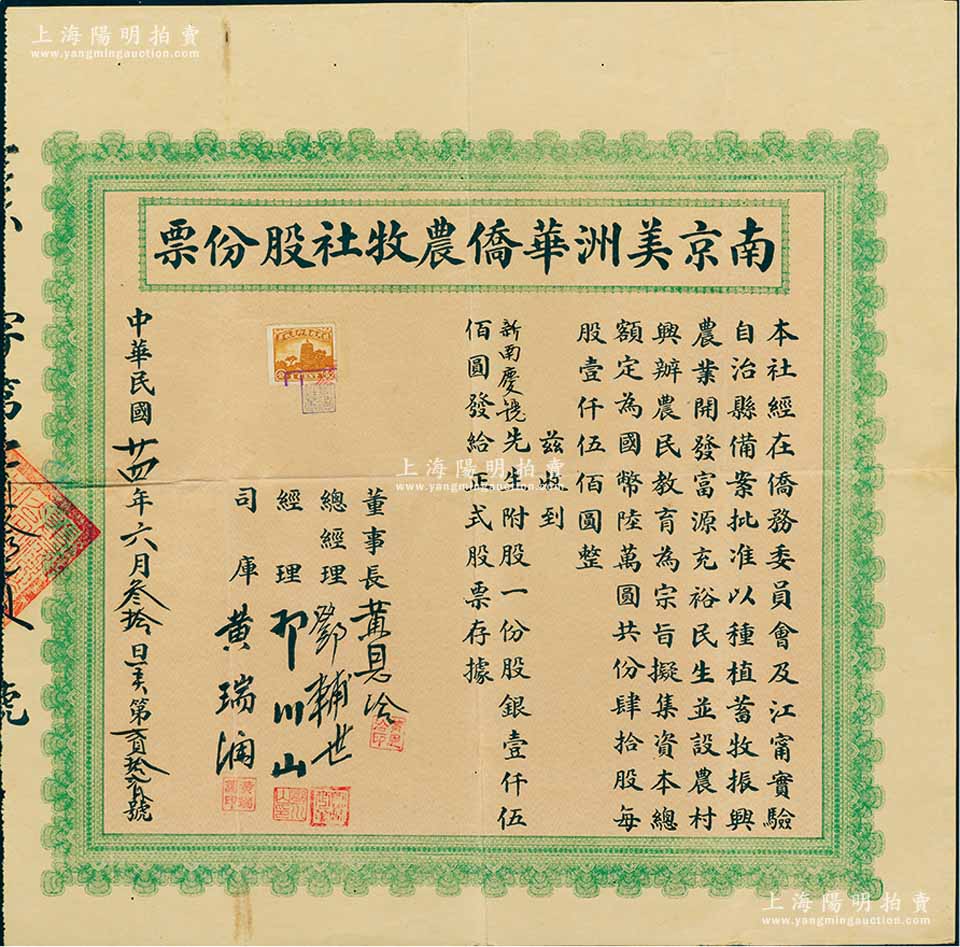 上海陽明拍賣
www.yangmingauction.com
南京美洲華僑農牧社股份票
本社經在僑務委員會及江甯實驗
自治縣備案批准以種植蓄牧振興
農業開發富源充裕民生並設農村
興辦農民教育為宗旨擬集資本總
額定為國幣陸萬圓共份肆拾股每
股壹仟伍佰圓整
茲收到
新南慶號先生附股一份股銀壹仟伍
佰圓發給正式股票存據
董事長 黃恩
總經理 鄧輔世
經理 川山
司庫 黃瑞
中華民國廿四年六月叁拾日 第 號
字第 號
上海陽明拍賣
www.yangmingauction.com
上海陽明拍賣
www.yangmingauction.com